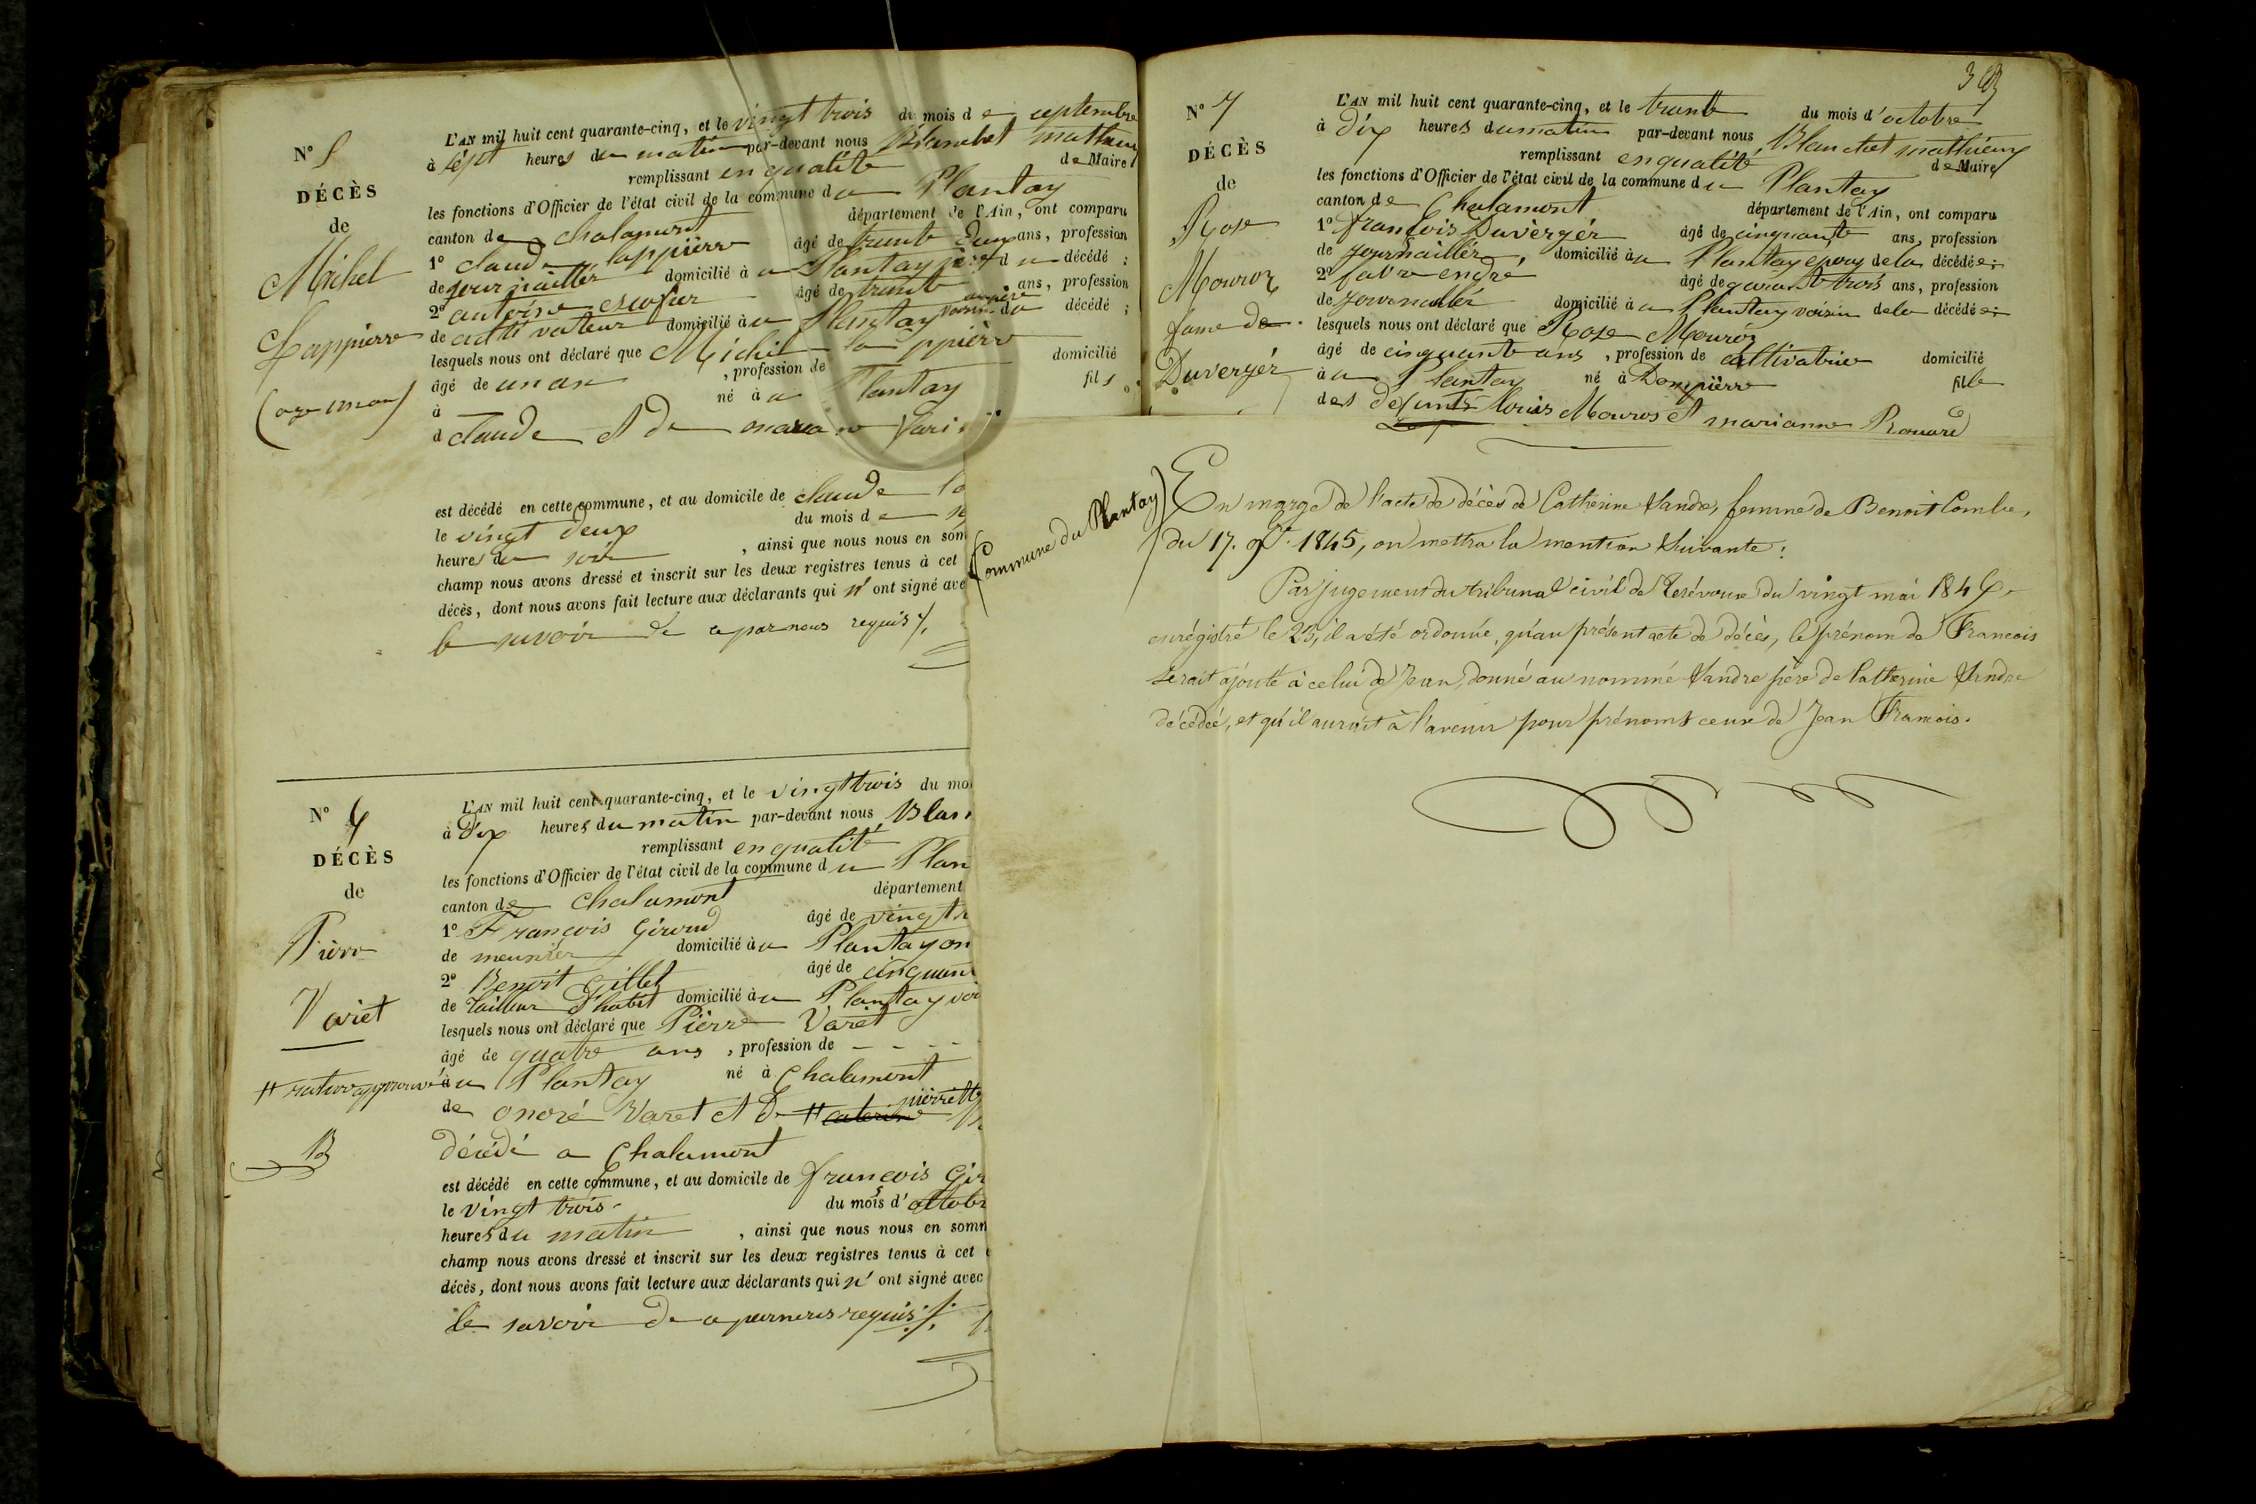 N° 5
DÉCÈS
de
Michel
Lappierre
(age un an)
L'AN mil huit cent quarante-cinq, et le vingt trois du mois de ceptembre
à sept heures du matin par-devant nous Blanchet mathieu
remplissant en qualité de Maire
les fonctions d'Officier de l'état civil de la commune du Plantay
canton de chalamont département de l'Ain, ont comparu
1° claude lappierre âgé de trante deux ans, profession
de journaillier domicilié au Plantay père du décédé ;
2° antoine escofier âgé de trante ans, profession
de cultivateur domicilié au Plantay voisin du décédé ;
lesquels nous ont déclaré que Michel lappierre
âgé de un an , profession de domicilié
à né au Plantay fils
d claude et de
est décédé en cette commune, et au domicile de claude la
le vingt deux du mois de se
heures du soir , ainsi que nous nous en som
champ nous avons dressé et inscrit sur les deux registres tenus à cet
décès, dont nous avons fait lecture aux déclarants qui n'ont signé ave
le savoir de ce par nous requis ./.
N° 6
DÉCÈS
de
Pierre
Variet
# rature approuvé
B
L'AN mil huit cent quarante-cinq, et le vingt trois du mo
à dix heures du matin par-devant nous Blan
remplissant en qualité
les fonctions d'Officier de l'état civil de la commune du Plan
canton de chalamont département
1° François Giroud âgé de vingt
de meunier domicilié au Plantay on
2° Benoit Gillet âgé de cinquan
de tailleur d'habit domicilié au Plantay voi
lesquels nous ont déclaré que Pierre Varet
âgé de quatre ans , profession de - - - -
au Plantay né à Chalamont
de onoré Varet et de # caterine pierrette
décédé a Chalamont
est décédé en cette commune, et au domicile de françois Gir
le vingt trois du mois d'octobr
heures du matin , ainsi que nous nous en somm
champ nous avons dressé et inscrit sur les deux registres tenus à cet
décès, dont nous avons fait lecture aux déclarants qui n'ont signé avec
le savoir de ce par nous requis ./.
N° 7
DÉCÈS
de
Rose
Mouroz
fame de
Duvergér
L'AN mil huit cent quarante-cinq, et le trante du mois d'octobre
à dix heures du matin par-devant nous Blanchet mathieu
remplissant en qualité de Maire
les fonctions d'Officier de l'état civil de la commune du Plantay
canton de Chalamont département de l'Ain, ont comparu
1° françois Duvergér âgé de cinquante ans, profession
de journaillér, domicilié au Plantay epoux de la décédée ;
2° fabre endré âgé de garante trois ans, profession
de journallér domicilié au Plantay voisin de la décédée ;
lesquels nous ont déclaré que Rose Mouroz
âgé de cinquante ans , profession de cultivatrice domicilié
à au Plantay né à Dompierre fille
des defunts louis Mouros et marianne Renard
(Commune du Plantay)
En marge de l'acte de décès de Catherine Vandre, femme de Benoit Combe,
du 17. 9bre 1845, on mettra la mention suivante :
Par jugement du tribunal civil de Trévoux du vingt mai 1846,
enrégistré le 25, il a été ordonné, qu'au présent acte de décès, le prénom de Francois
serait ajouté à celui de Jean, donné au nommé Vandre père de Catherine Vandre
décédée, et qu'il aurait à l'avenir pour prénoms ceux de Jean Francois.